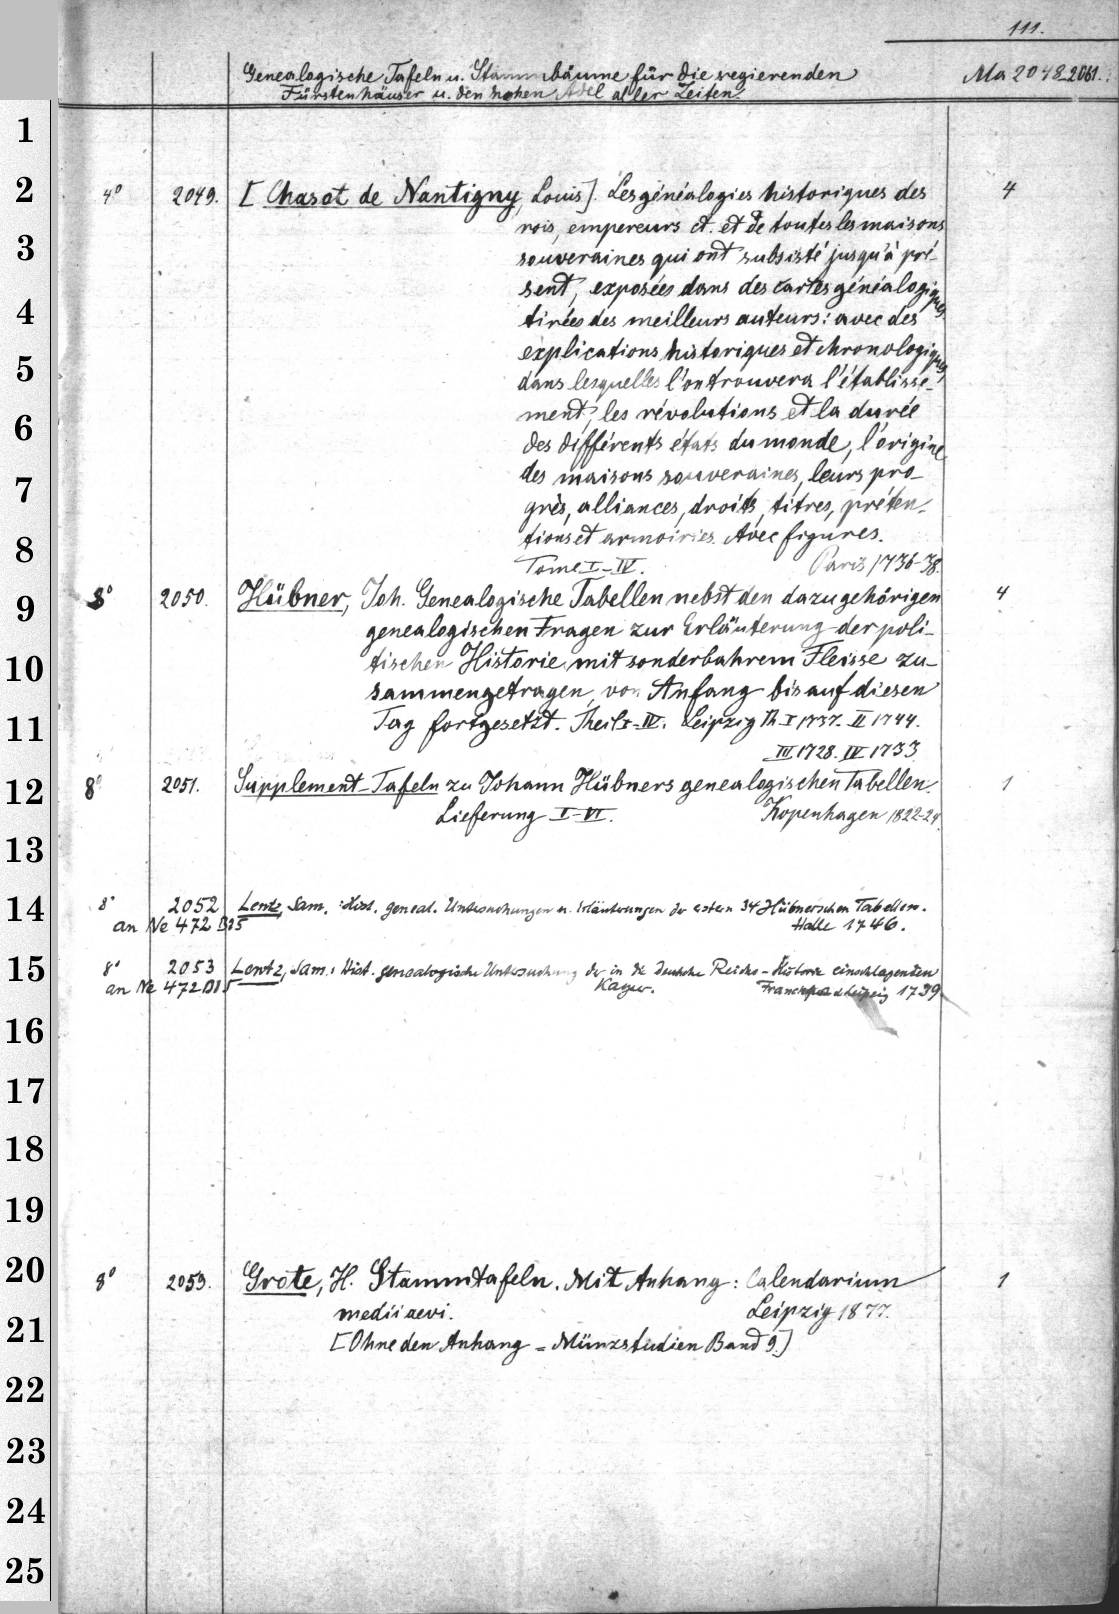 111.
Genealogische Tafeln u. Stammbäume für die regierenden Ma 2048-2061.
Fürstenhäuser u. den hohen Adel aller Zeiten.
1
2
3
4
5
6
7
8
9
10
11
12
13
14
15
16
17
18
19
20
21
22
23
24
25
4° 2049. [Chasot de Nantigny, Louis]. Les généalogies historiques des 4
rois, empereurs ct. et de toutes les maisons
souveraines qui ont subsisté jusqu'à pré-
sent, exposées dans des cartes généalogiques
tirées des meilleurs auteurs: avec des
explications historiques et chronologiques,
dans lesquelles l'on trouvera l'établisse-
ment, les révolutions et la durée
des différents états du monde, l'origine
des maisons souveraines, leurs pro-
grès, alliances, droits, titres, préten-
tions et armoiries. Avec figures.
Tome I-IV. Paris 1736-38.
8° 2050. Hübner, Joh. Genealogische Tabellen nebst den dazu gehörigen 4
genealogischen Fragen zur Erläuterung der poli-
tischen Historie, mit sonderbahrem Fleisse zu-
sammengetragen, von Anfang bis auf diesen
Tag fortgesetzt. Theil I-IV. Leipzig Th I 1737. II 1744.
III 1728. IV 1733
8° 2051. Supplement-Tafeln zu Johann Hübners genealogischen Tabellen. 1
Lieferung I-VI. Kopenhagen 1822-24.
8° 2052 Lentz, Sam.: Hist. geneal. Untersuchungen u. Erläuterungen der ersten 34 Hübnerschen Tabellen.
an Ne 472 D15 Halle 1746.
8° 2053 Lentz, Sam.: Hist. genealogische Untersuchung der in die deutsche Reichs-Historie einschlagenden
an Ne 472 D15 Kayser. Leipzig 1739
8° 2059. Grote, H. Stammtafeln. Mit Anhang: Calendarium 1
medii aevi. Leipzig 1877.
[Ohne den Anhang = Münzstudien Band 9.]